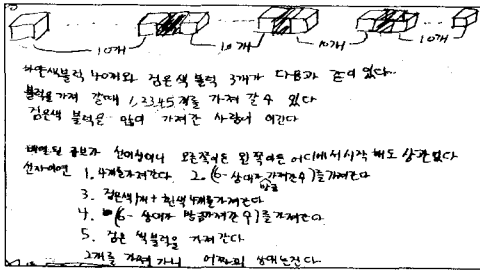 10개 10개 10개 10개
하얀색블럭 40개와 검은색 블럭 3개가 다음과 같이 있다.
블럭을 가져 갈때 1,2,3,4,5 개를 가져 갈수 있다
검은색 블럭을 많이 가져간 사람이 이긴다
오른쪽이든 왼쪽이든 어디에서 시작 해도 상관없다
1. 4개를 가져간다. 2. (6- 상대가 가져간수)를 가져간다
3. 검은색1개 + 흰색 4개를 가져간다
4. (6- 상대가 방금 가져간 수)를 가져간다
5. 검은 색블럭을 가져 간다
2개를 가져 가니 어짜피 상대는진다.